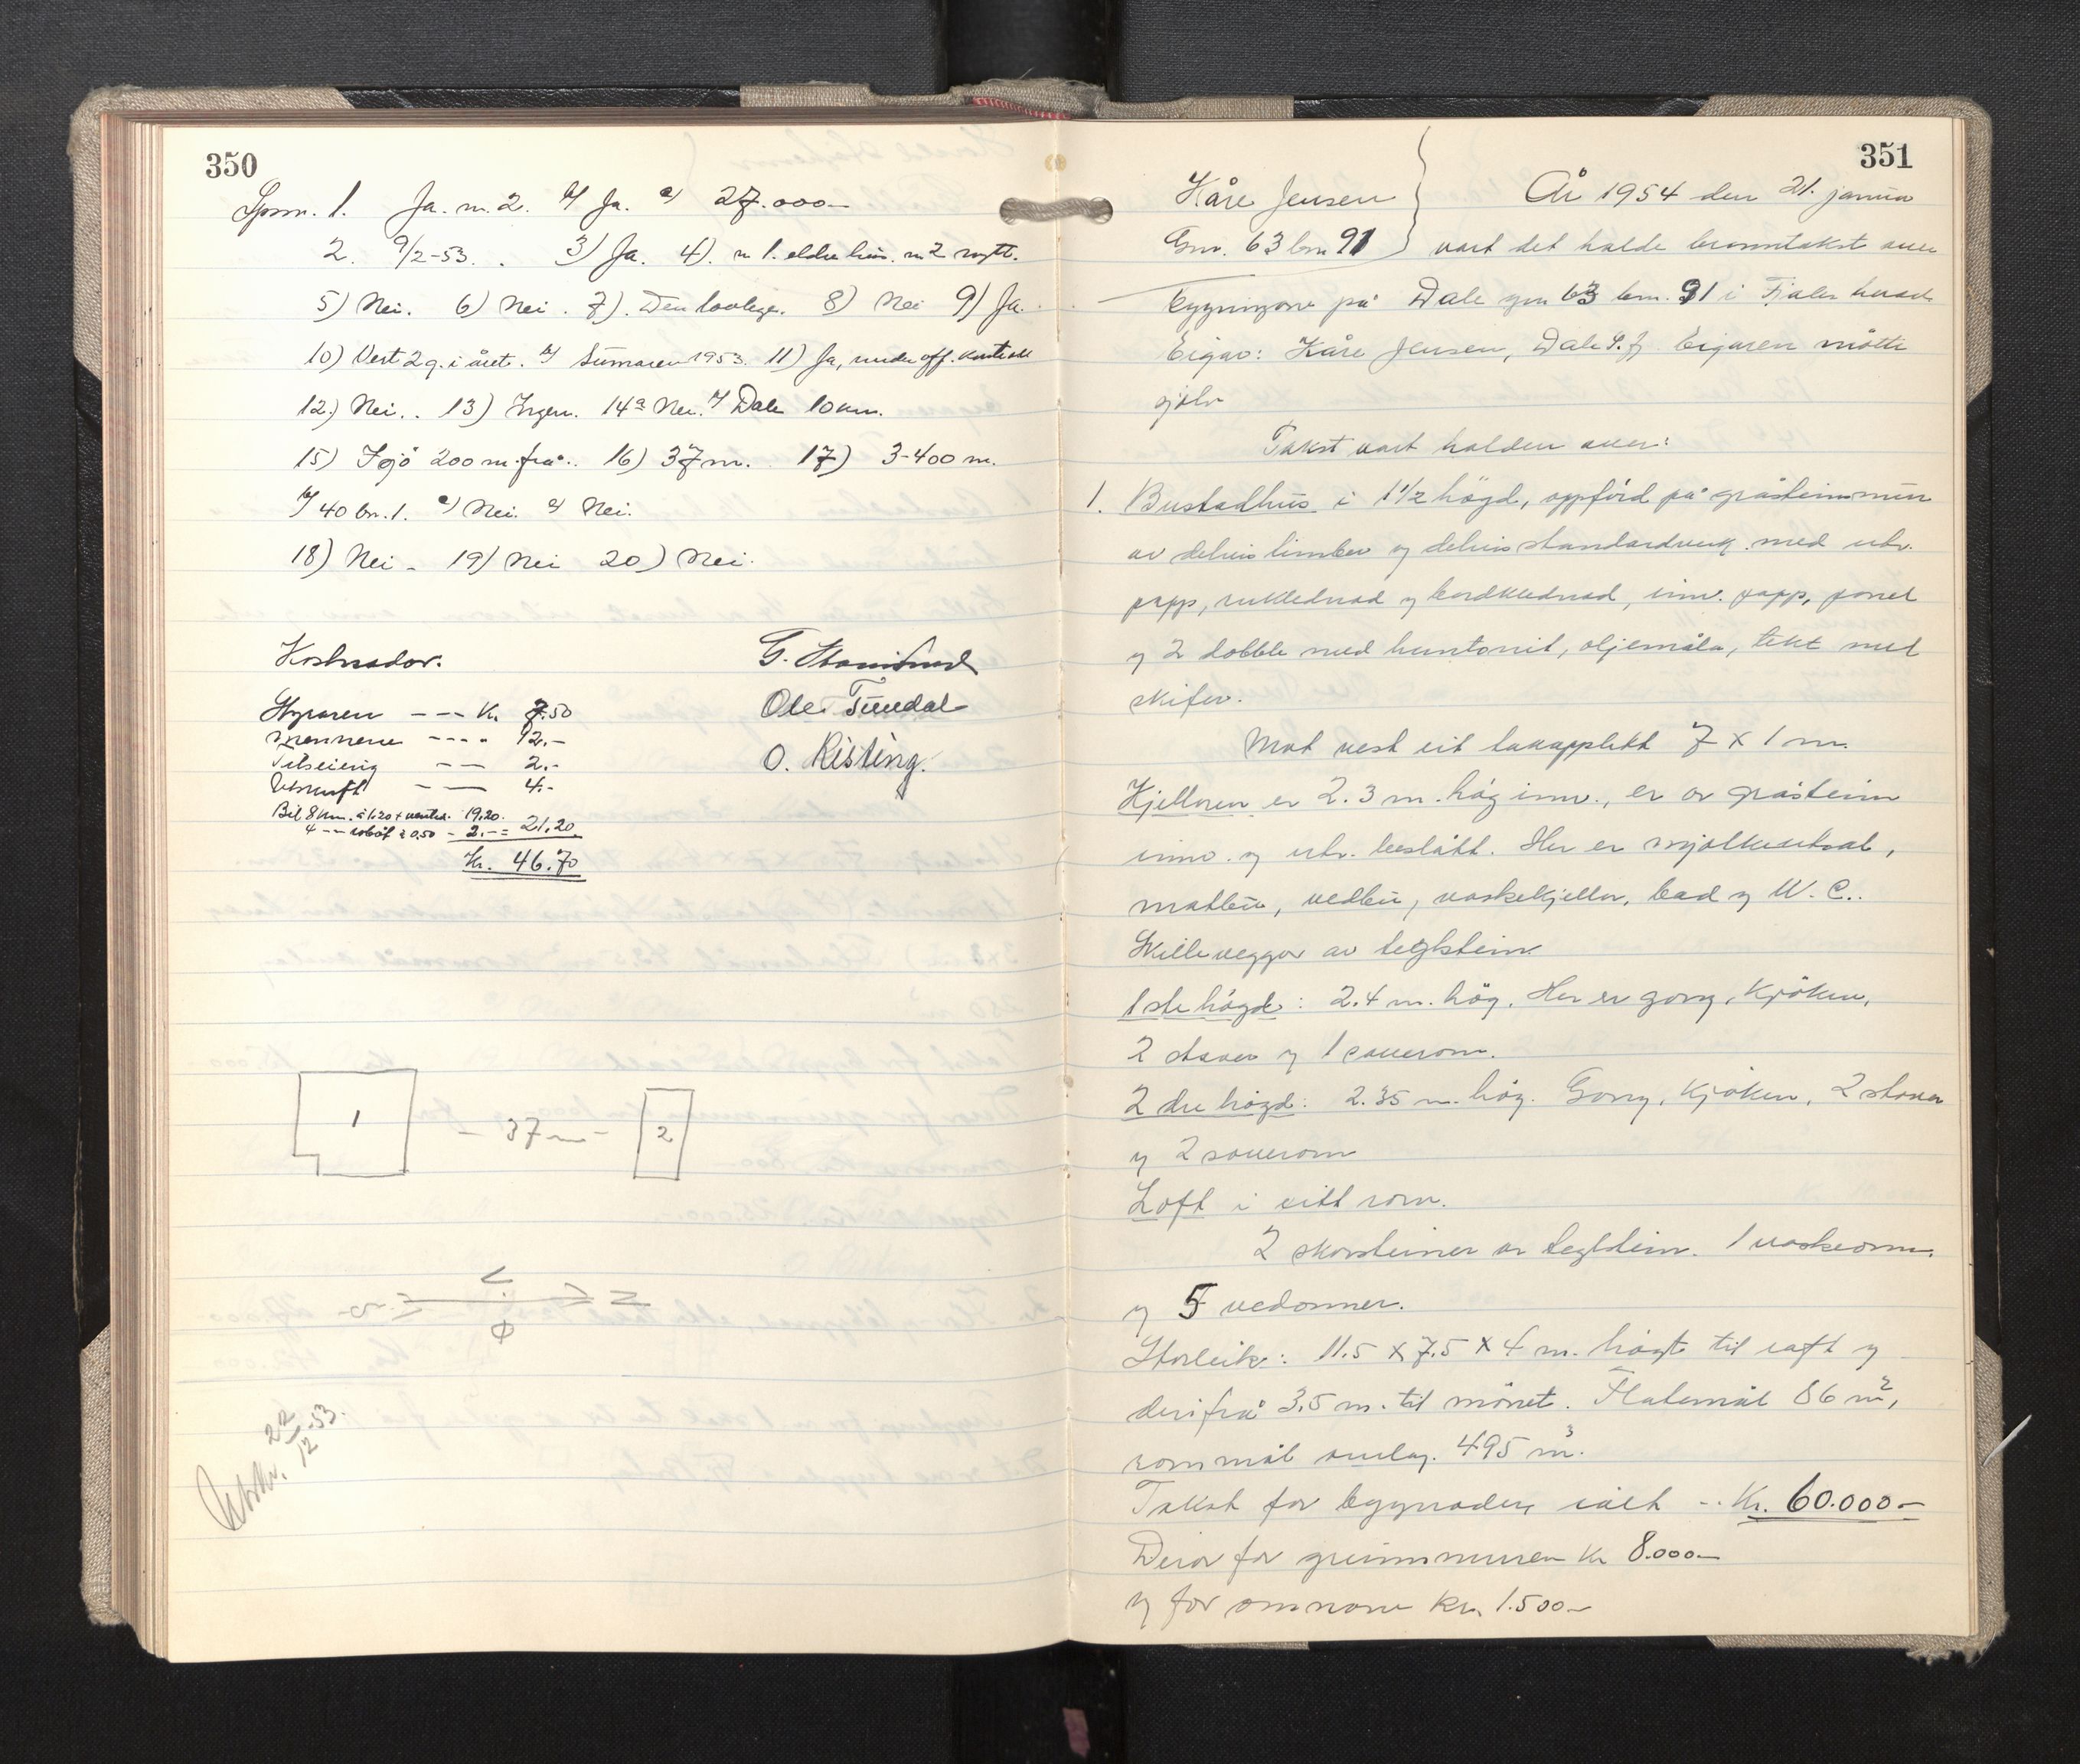 350
Spsm. 1. Ja. m. 2. b/ Ja. c/ 27.000-
2. 9/2-53. . 3) Ja. 4). nr 1. eldre hus. nr 2 nytt.
5) Nei. 6) Nei. 7). Den lovlege. 8) Nei 9) Ja.
10) Vert 2 g. i året. b/ Sumaren 1953. 11) Ja, under off. kontroll
12.) Nei.. 13) Ingen. 14a Nei. b/ Dale 10 km.
15) Sjø 200 m. frå. 16) 37 m. 17) 3-400 m.
b/ 40 br. 1. c/ Nei. d/ Nei.
18) Nei - 19) Nei 20) Nei.
Kostnader.
Styraren --- Kr. 7.50
Mennene ---- 12.-
Tilseiing -- 2.-
Utskrift -- 4.-
Bil 8 km. á 1.20 + 19.20.
4 -- robåt á 0.50 - 2.- = 21.20
Kr. 46.70
G.
Ole Tundal
O. Risting.
1
- 37 m -
2
V
S N
Ø
Utskr. 22/12-53.
351
Kåre Jensen
Gnr. 63 bnr 91
År 1954 den 21. januar
vart det halde branntakst over
bygningane på Dale gnr 63 bnr. 91 i Fjaler herad.
Eigar: Kåre Jensen, Dale S.fj. Eigaren møtte
sjølv
Takst vart halden over:
1. Bustadhus i 1 1/2 högd, oppförd på gråsteinsmur
av delvis timber og delvis standardverk med utv.
papp, ruklednad og bordklednad, innv. papp, panel
og 2 dobble med huntonit, oljemåla, tekt med
skifer.
Mot vest eit takopplett 7 x 1 m.
Kjellaren er 2.3 m. høg innv., er av gråstein
innv. og utv. beslått. Her er mjølkeutsal,
matbu, vedbu, vaskekjellar, bad og W.C..
Skilleveggar av teglstein.
1ste högd: 2.4 m. høg. Her er gang, kjøken,
2 stover og 1 soverom.
2 dre högd: 2.35 m. høg. Gang, kjøken, 2 stover
og 2 soverom
Loft i eitt rom.
2 skorsteiner av teglstein. 1 vaskeomn.
og 5 vedomner.
Storleik: 11.5 x 7.5 x 4 m. högt til raft og
derifrå 3.5 m. til mønet. Flatemål 86 m²,
rommål omlag. 495 m³.
Takst for byggnaden i alt -- Kr. 60.000-
Derav for grunnmuren Kr 8.000-
og for omnane Kr. 1.500-